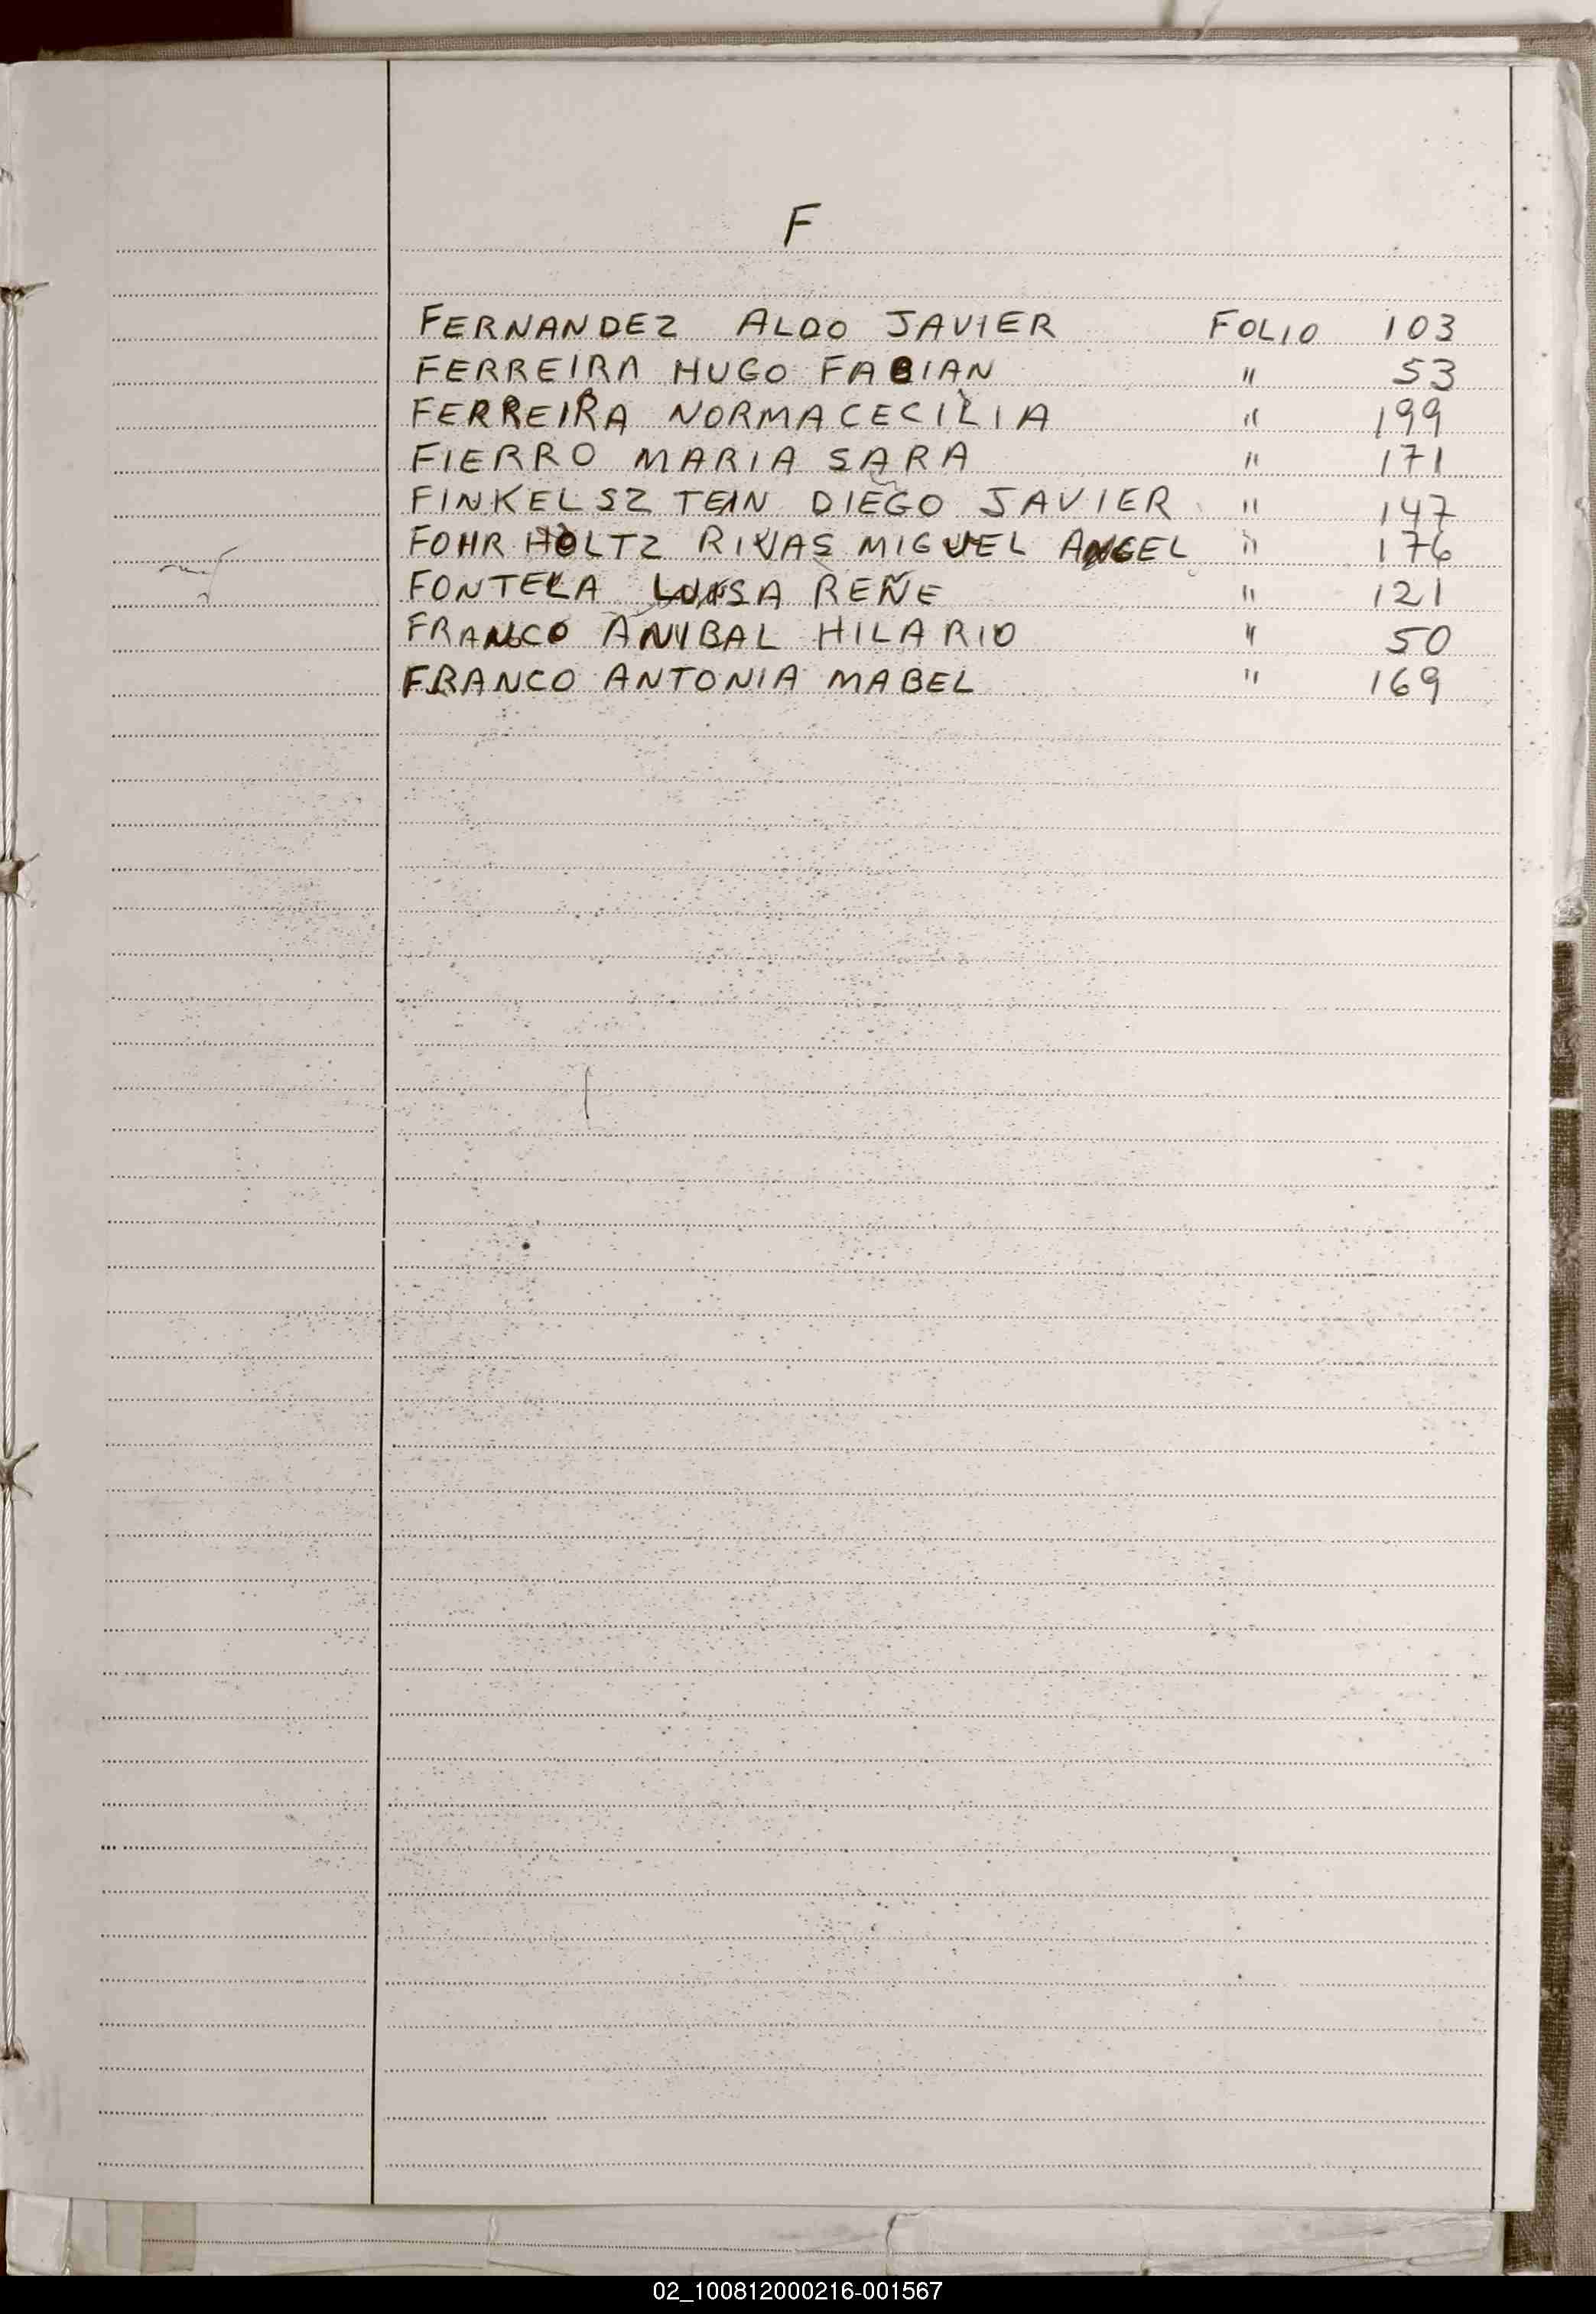 F
FERNANDEZ ALDO JAVIER FOLIO 103
FERREIRA HUGO FABIAN " 53
FERREIRA NORMA CECILIA " 199
FIERRO MARIA SARA " 171
FINKELSZTEIN DIEGO JAVIER " 147
FOHR HOLTZ RIVAS MIGUEL ANGEL " 176
FONTELA LUISA REÑE " 121
FRANCO ANIBAL HILARIO " 50
FRANCO ANTONIA MABEL " 169
02_100812000216-001567